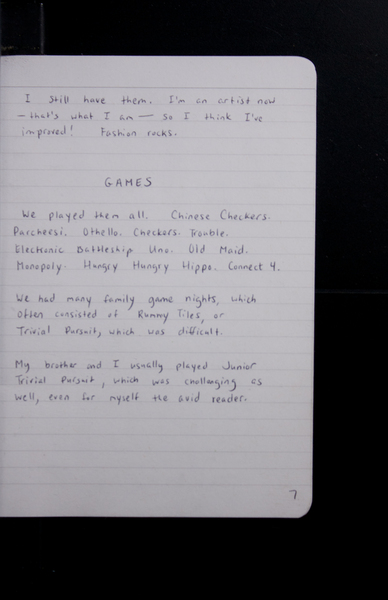 I still have them. I'm an artist now
— that's what I am — so I think I've
improved! Fashion rocks.
GAMES
We played them all. Chinese Checkers.
Parcheesi. Othello. Checkers. Trouble.
Electronic Battleship Uno. Old Maid.
Monopoly. Hungry Hungry Hippo. Connect 4.
We had many family game nights, which
often consisted of Rummy Tiles, or
Trivial Pursuit, which was difficult.
My brother and I usually played Junior
Trivial Pursuit, which was challenging as
well, even for myself the avid reader.
7